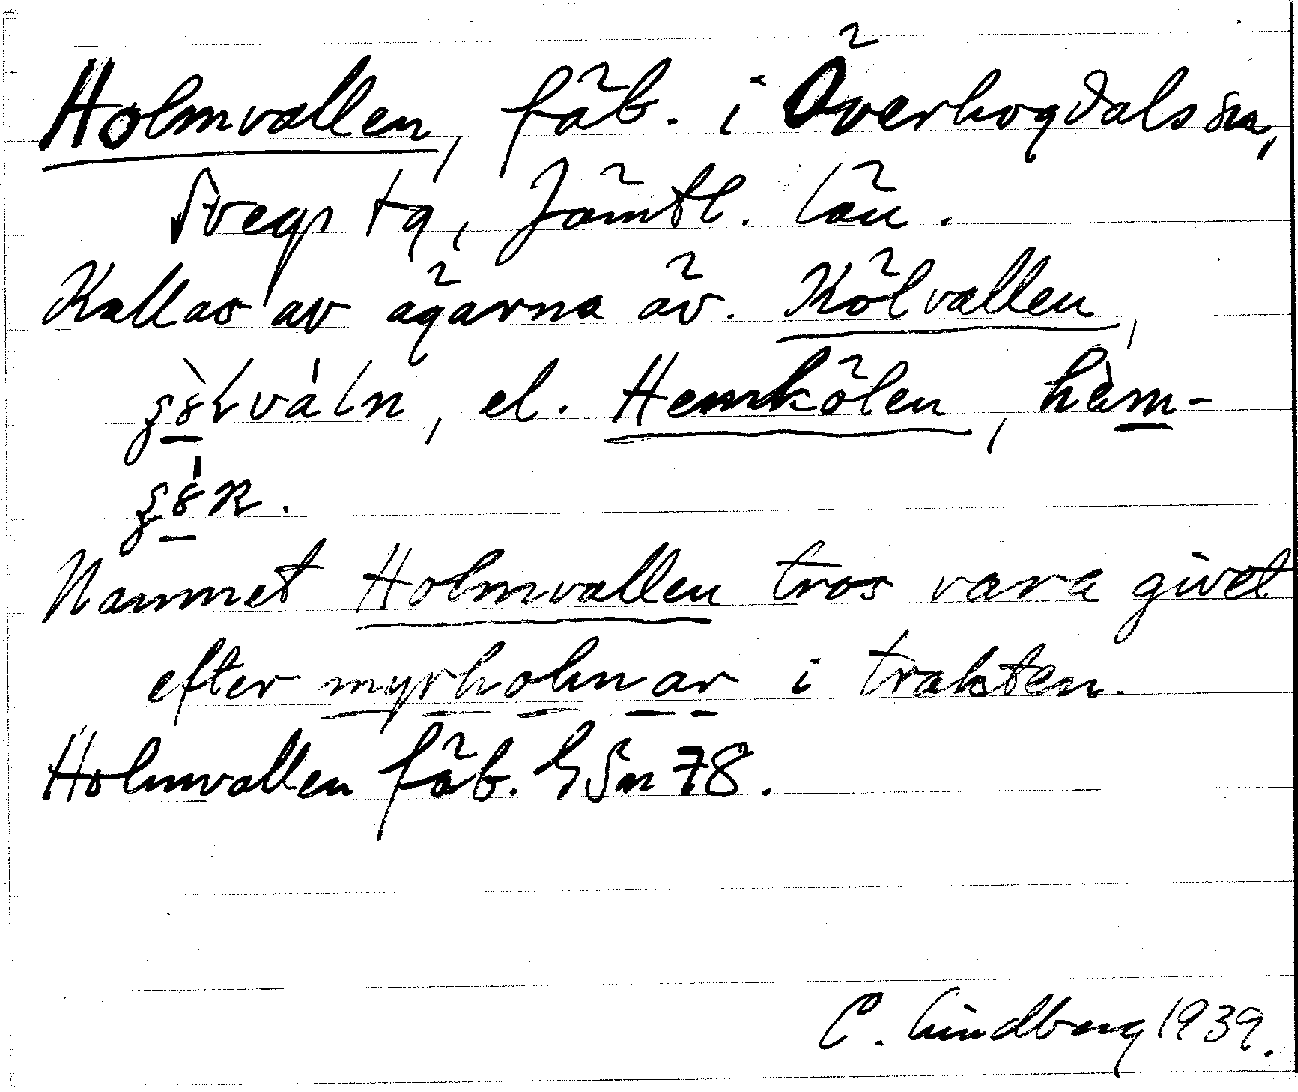 Holmvallen, fäb. i Överhogdals sn,
Svegs tg, Jämtl. län.
Kallas av ägarna äv. Kölvallen,
el. Hemkölen, hèm-
Namnet Holmvallen tros vara givet
efter myrholmar i trakten.
Holmvallen fäb. GSm 78.
C. Lindberg 1939.